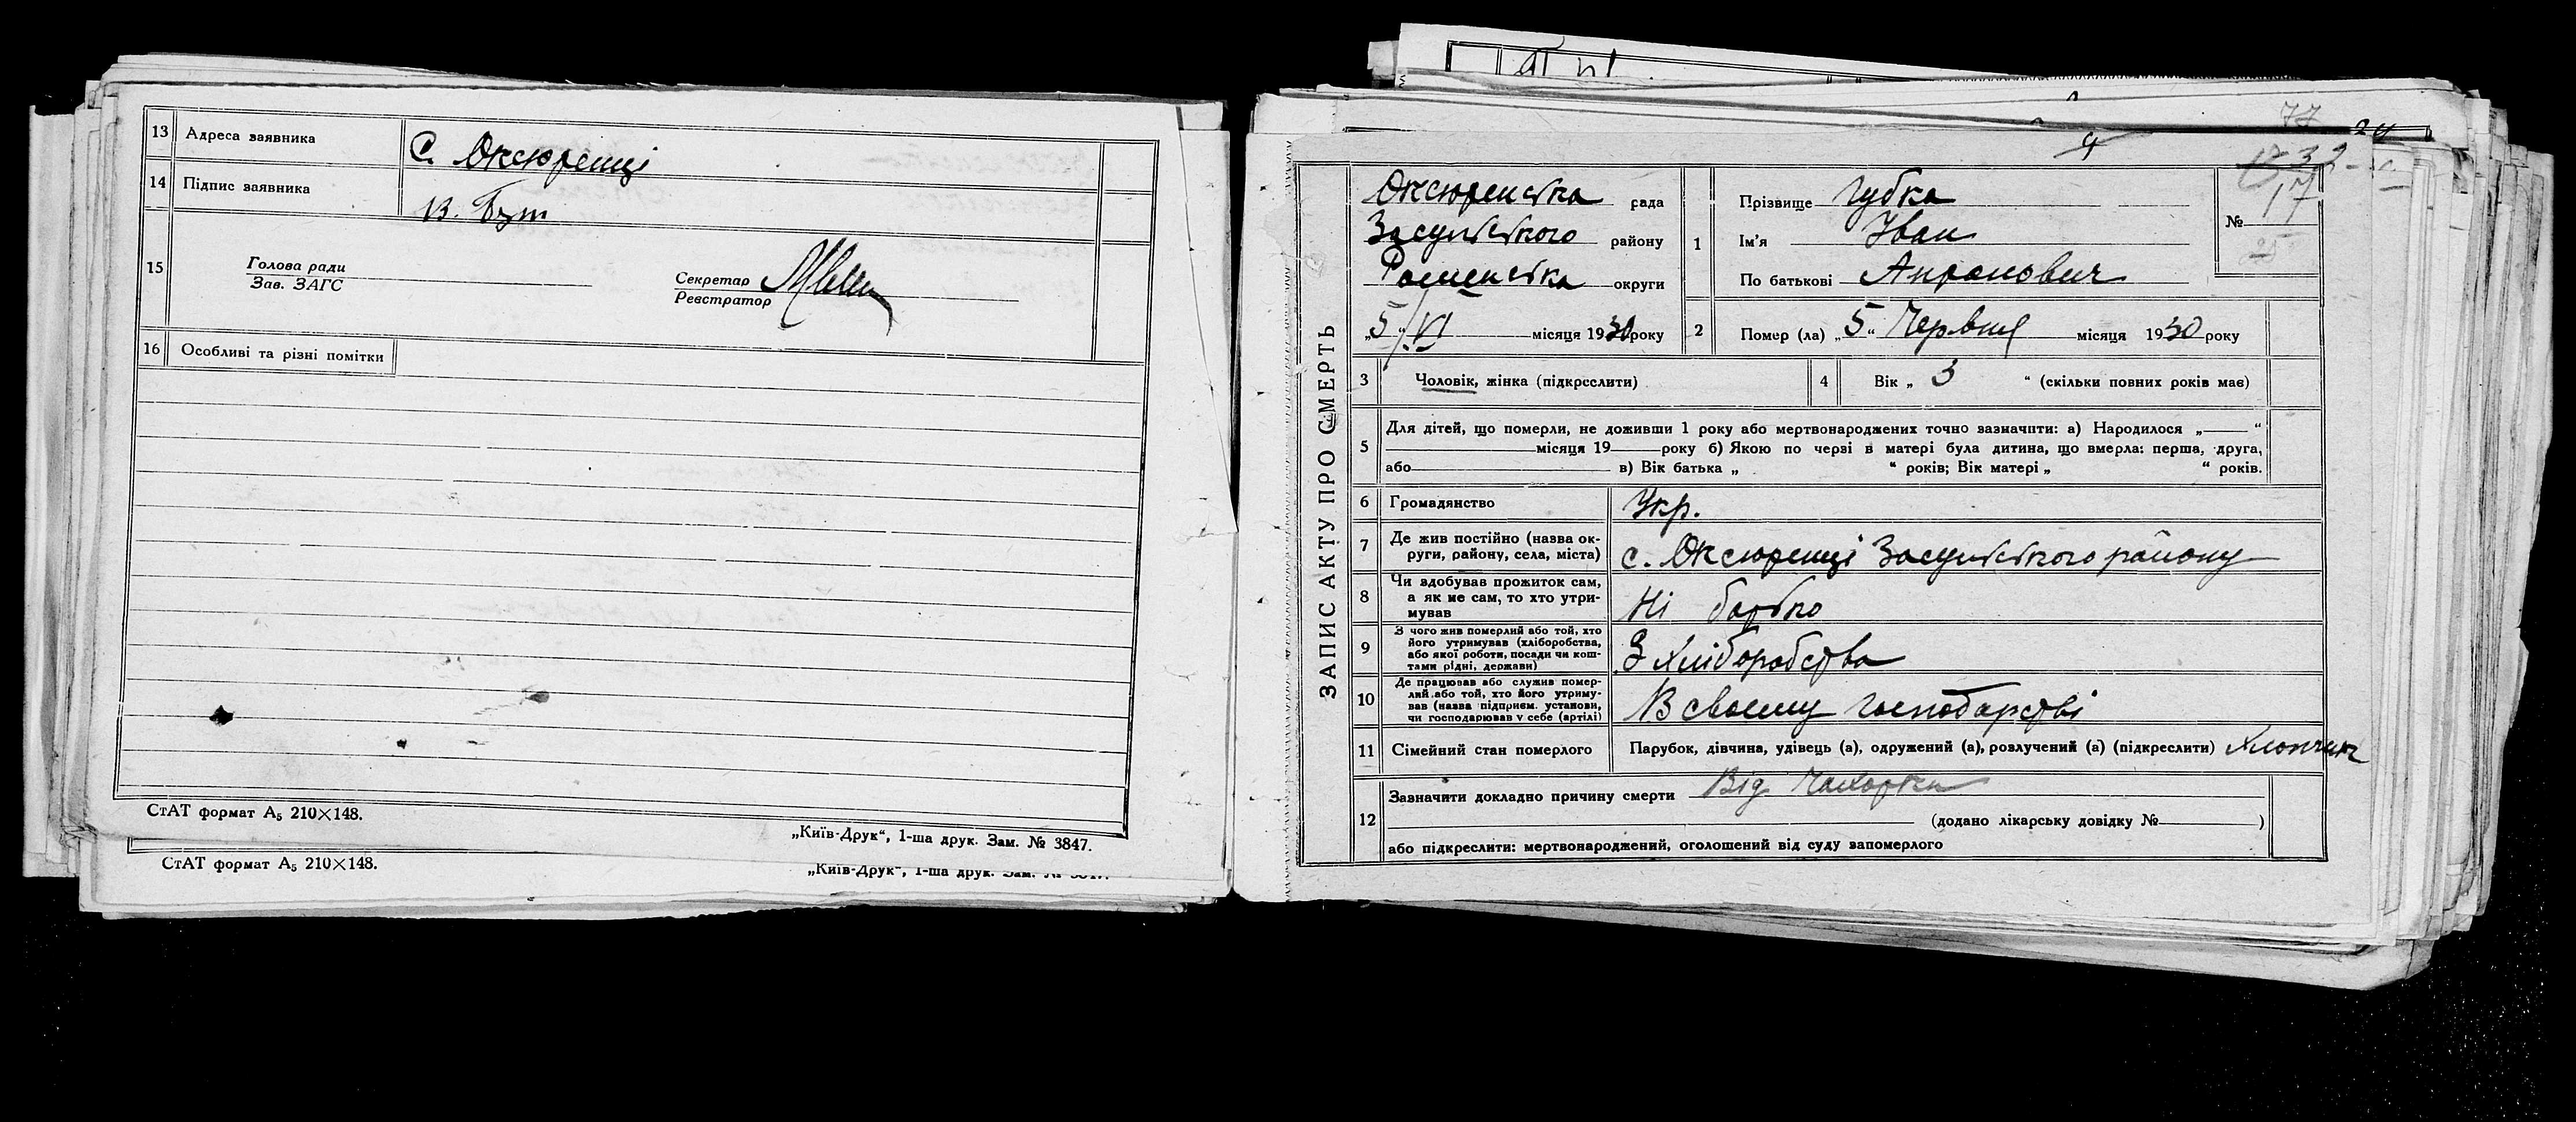 13 Адреса заявника С. Оксюренці
14 Підпис заявника В. Бут
15 Голова ради
Зав. ЗАГС
Секретар
Реєстратор
16 Особливі та різні помітки
СтАТ формат А5 210×148.
„Київ-Друк“, 1-ша друк. Зам. № 3847.
СтАТ формат А5 210×148.
„Київ-Друк“, 1-ша друк. Зам. №
ЗАПИС АКТУ ПРО СМЕРТЬ
Оксюренська рада
Засульського району
Роменська округи
„5“/VI місяця 1930 року
1 Прізвище Губка
Ім'я Іван
По батькові Андронович
№ 17
25
2 Помер (ла) „5“ Червня місяця 1930 року
3 Чоловік, жінка (підкреслити)
4 Вік „ 3 “ (скільки повних років має)
5 Для дітей, що померли, не доживши 1 року або мертвонароджених точно зазначити: а) Народилося „ “
місяця 19 року б) Якою по черзі в матері була дитина, що вмерла: перша, друга,
або в) Вік батька „ “ років; Вік матері „ “ років.
6 Громадянство Укр.
7 Де жив постійно (назва ок-
руги, району, села, міста) с. Оксюренці Засульського району
8 Чи здобував прожиток сам,
а як не сам, то хто утри-
мував Ні батько
9 З чого жив померлий або той, хто
його утримував (хліборобства,
або якої роботи, посади чи кош-
тами рідні, держави) З хліборобства
10 Де працював або служив помер-
лий або той, хто його утриму-
вав (назва підприєм. установи,
чи господарював у себе (артілі) В своему господарстві
11 Сімейний стан померлого Парубок, дівчина, удівець (а), одружений (а), розлучений (а) (підкреслити) Хлопчик
12 Зазначити докладно причину смерти Від Чахотки
(додано лікарську довідку № )
або підкреслити: мертвонароджений, оголошений від суду запомерлого